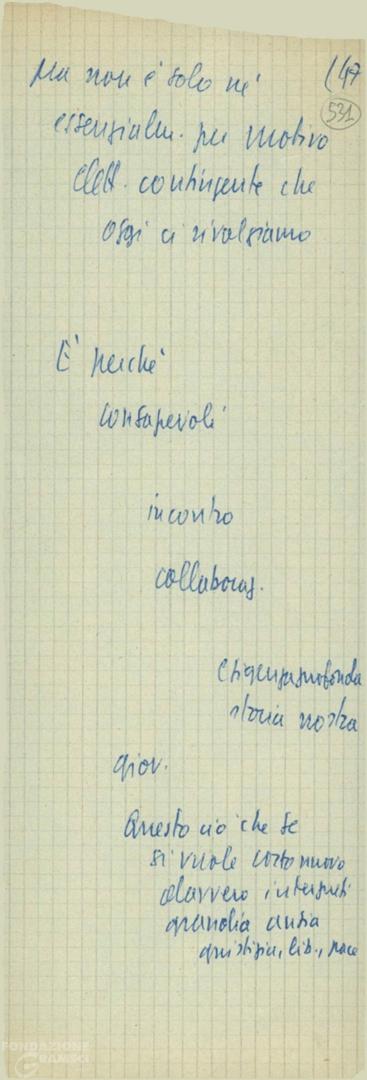 Ma non è solo né (47
531
essenzialm. per motivo
elett. contingente che
oggi ci rivolgiamo
È perché
consapevoli
incontro
collaboraz.
esigenza profonda
storia nostra
giov.
Questo ciò che se
si vuole corso nuovo
davvero interpreti
grande ansia
giustizia, lib., pace
FONDAZIONE
GRAMSCI